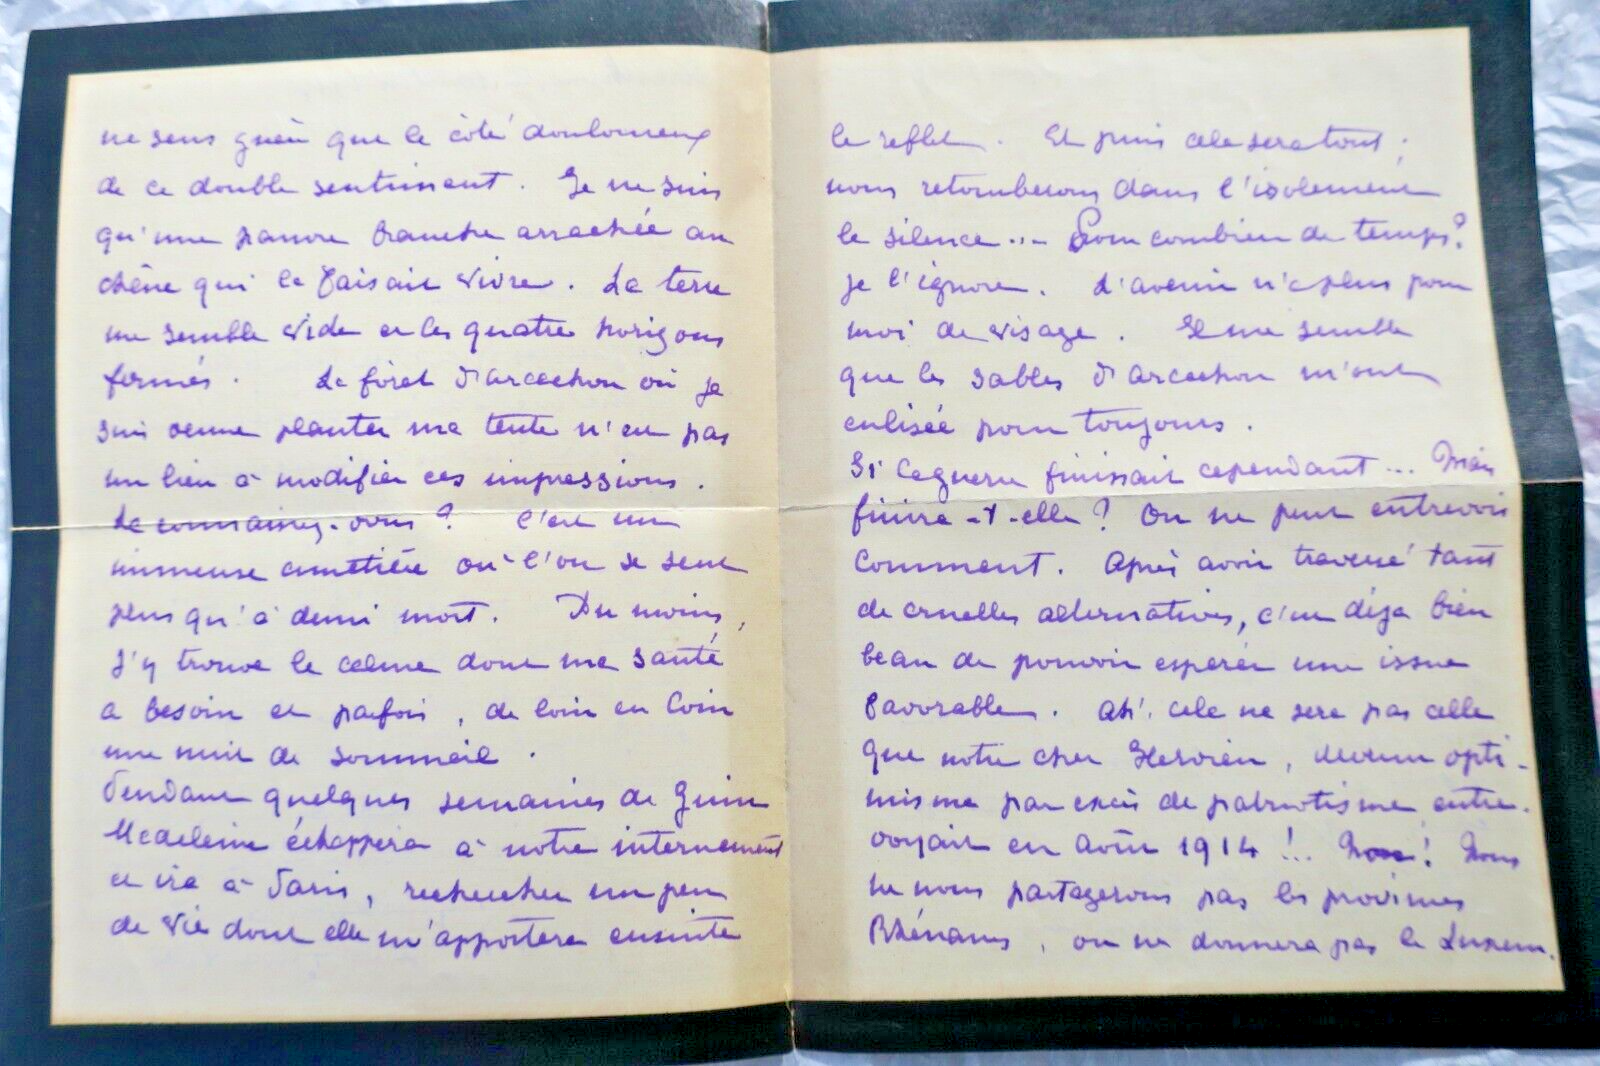 ne sens guère que le côté douloureux
de ce double sentiment. Je ne suis
qu'une pauvre branche arrachée au
chêne qui la faisait vivre. La terre
me semble vide et les quatre horizons
fermés. La forêt d'arcachon où je
suis venue planter ma tente n'est pas
un lieu à modifier ces impressions.
La connaissez-vous ? C'est un
immense cimetière où l'on se sent
plus qu'à demi mort. Du moins,
j'y trouve le calme dont ma santé
a besoin et parfois, de loin en loin
une nuit de sommeil.
Pendant quelques semaines de Juin
Madeleine échappera à notre internement
et ira à Paris, rechercher un peu
de vie dont elle m'apportera ensuite
le reflet. Et puis cela sera tout ;
nous retomberons dans l'isolement
le silence... Pour combien de temps ?
je l'ignore. L'avenir n'a plus pour
moi de visage. Il me semble
que les sables d'arcachon m'ont
enlisée pour toujours.
Si la guerre finissait cependant... Mais
finira-t-elle ? On ne peut entrevoir
comment. Après avoir traversé tant
de cruelles alternatives, c'est déjà bien
beau de pouvoir espérer une issue
favorable. Ah ! cela ne sera pas celle
que notre cher Hervieu, devenu opti-
misme par excès de patriotisme, entre-
voyait en août 1914 !.. Non ! Nous
ne nous partagerons pas les provinces
Rhénanes, on ne donnera pas le Luxem-